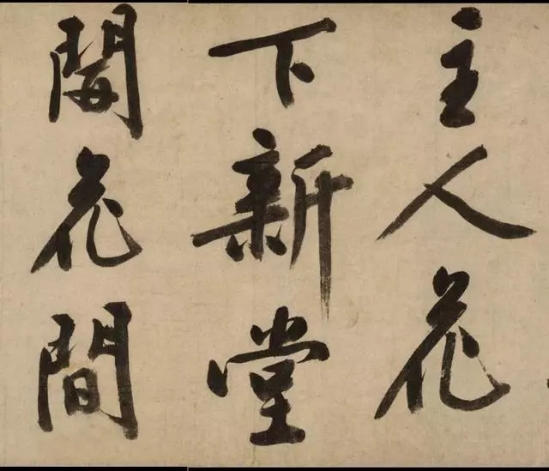 主人花
下新堂
開花間